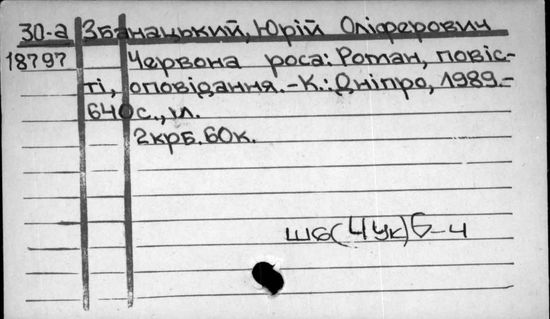 30-а Збанацький, Юрій Оліферович
18797 Червона роса: Роман, повіс-
ті, оповідання.-К.: Дніпро, 1989.-
640с., іл.
2крб. 60к.
Ш6(4Ук)6-4